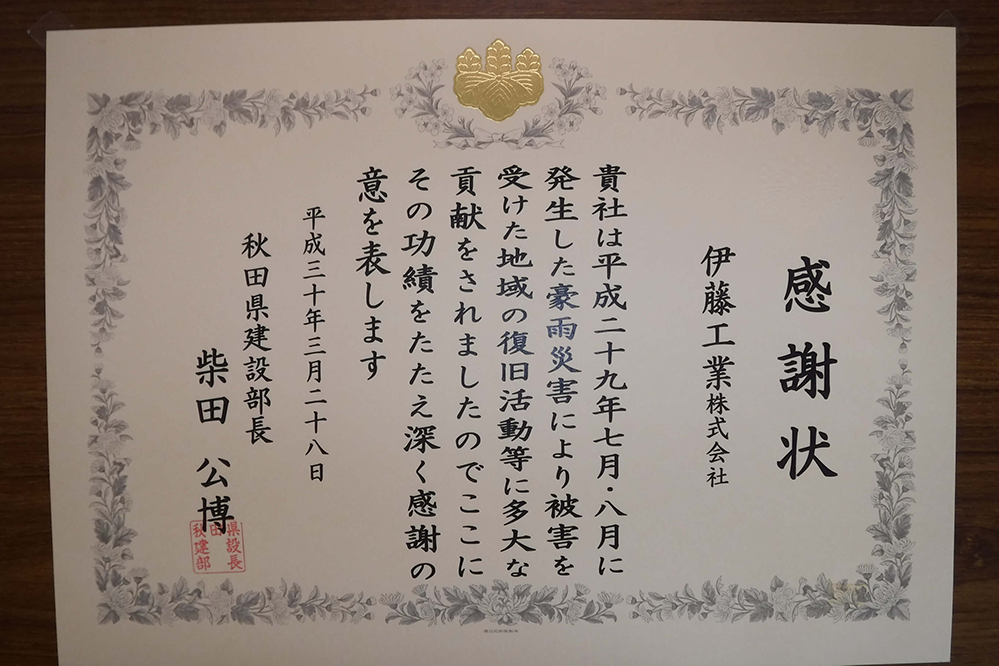 感謝状
伊藤工業株式会社
貴社は平成二十九年七月・八月に
発生した豪雨災害により被害を
受けた地域の復旧活動等に多大な
貢献をされましたのでここに
その功績をたたえ深く感謝の
意を表します
平成三十年三月二十八日
秋田県建設部長
柴田 公博
県設長
田
秋建部